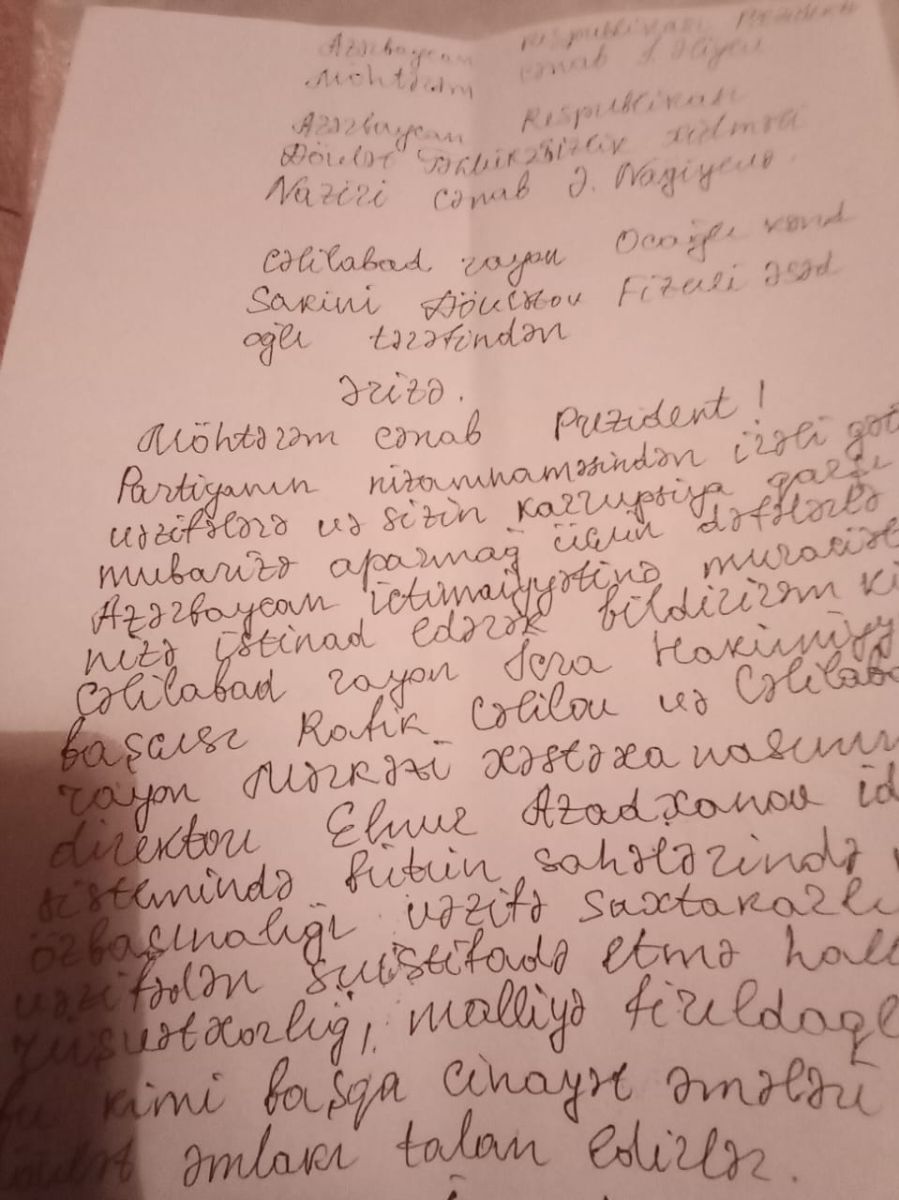 Azərbaycan Respublikası Prezidenti
Möhtərəm cənab İ. Əliyev
Azərbaycan Respublikası
Dövlət Təhlükəsizlik xidməti
Naziri cənab Ə. Nağıyevə.
Cəlilabad rayon Ocağlı kənd
Sakini Dövlətov Fizuli Əsəd
oğlı tərəfindən
Ərizə.
Möhtərəm cənab Prezident!
Partiyanın nizamnaməsindən irəli gət
vəzifələrə və sizin karrupsiya qarşı
mubarizə aparmağ üçün dəfələrlə
Azərbaycan ictimaiyyətinə muraciət
nizə istinad edərək bildirirəm ki
Cəlilabad rayon İcra Hakimiyy
başçısı Rafik Cəlilov və Cəlilaba
rayon Mərkəzi xəstəxanasının
direktoru Elnur Azadxanov id
sistemində bütün sahələrində
özbaşınalığı vəzifə saxtakarlı
vəzifədən suistifadə etmə hall
rüşvətxorlığ, malliyə fırıldaql
bu kimi başqa cinayət əməlləri
dövlət əmlakı talan edirlər.